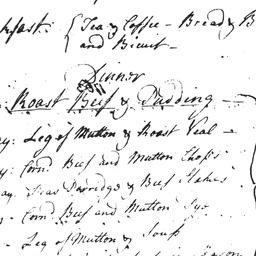 kfast: Tea & Coffee – Bread & B
and Biscuit –
Dinner
Roast Beef & Pudding –
ay: Leg of Mutton & Roast Veal –
y: Corn'd Beef and Mutton Chops
ay: Peas Porridge & Beef Stakes
y - Corn'd Beef and Mutton Pye
- Leg of Mutton & Soup